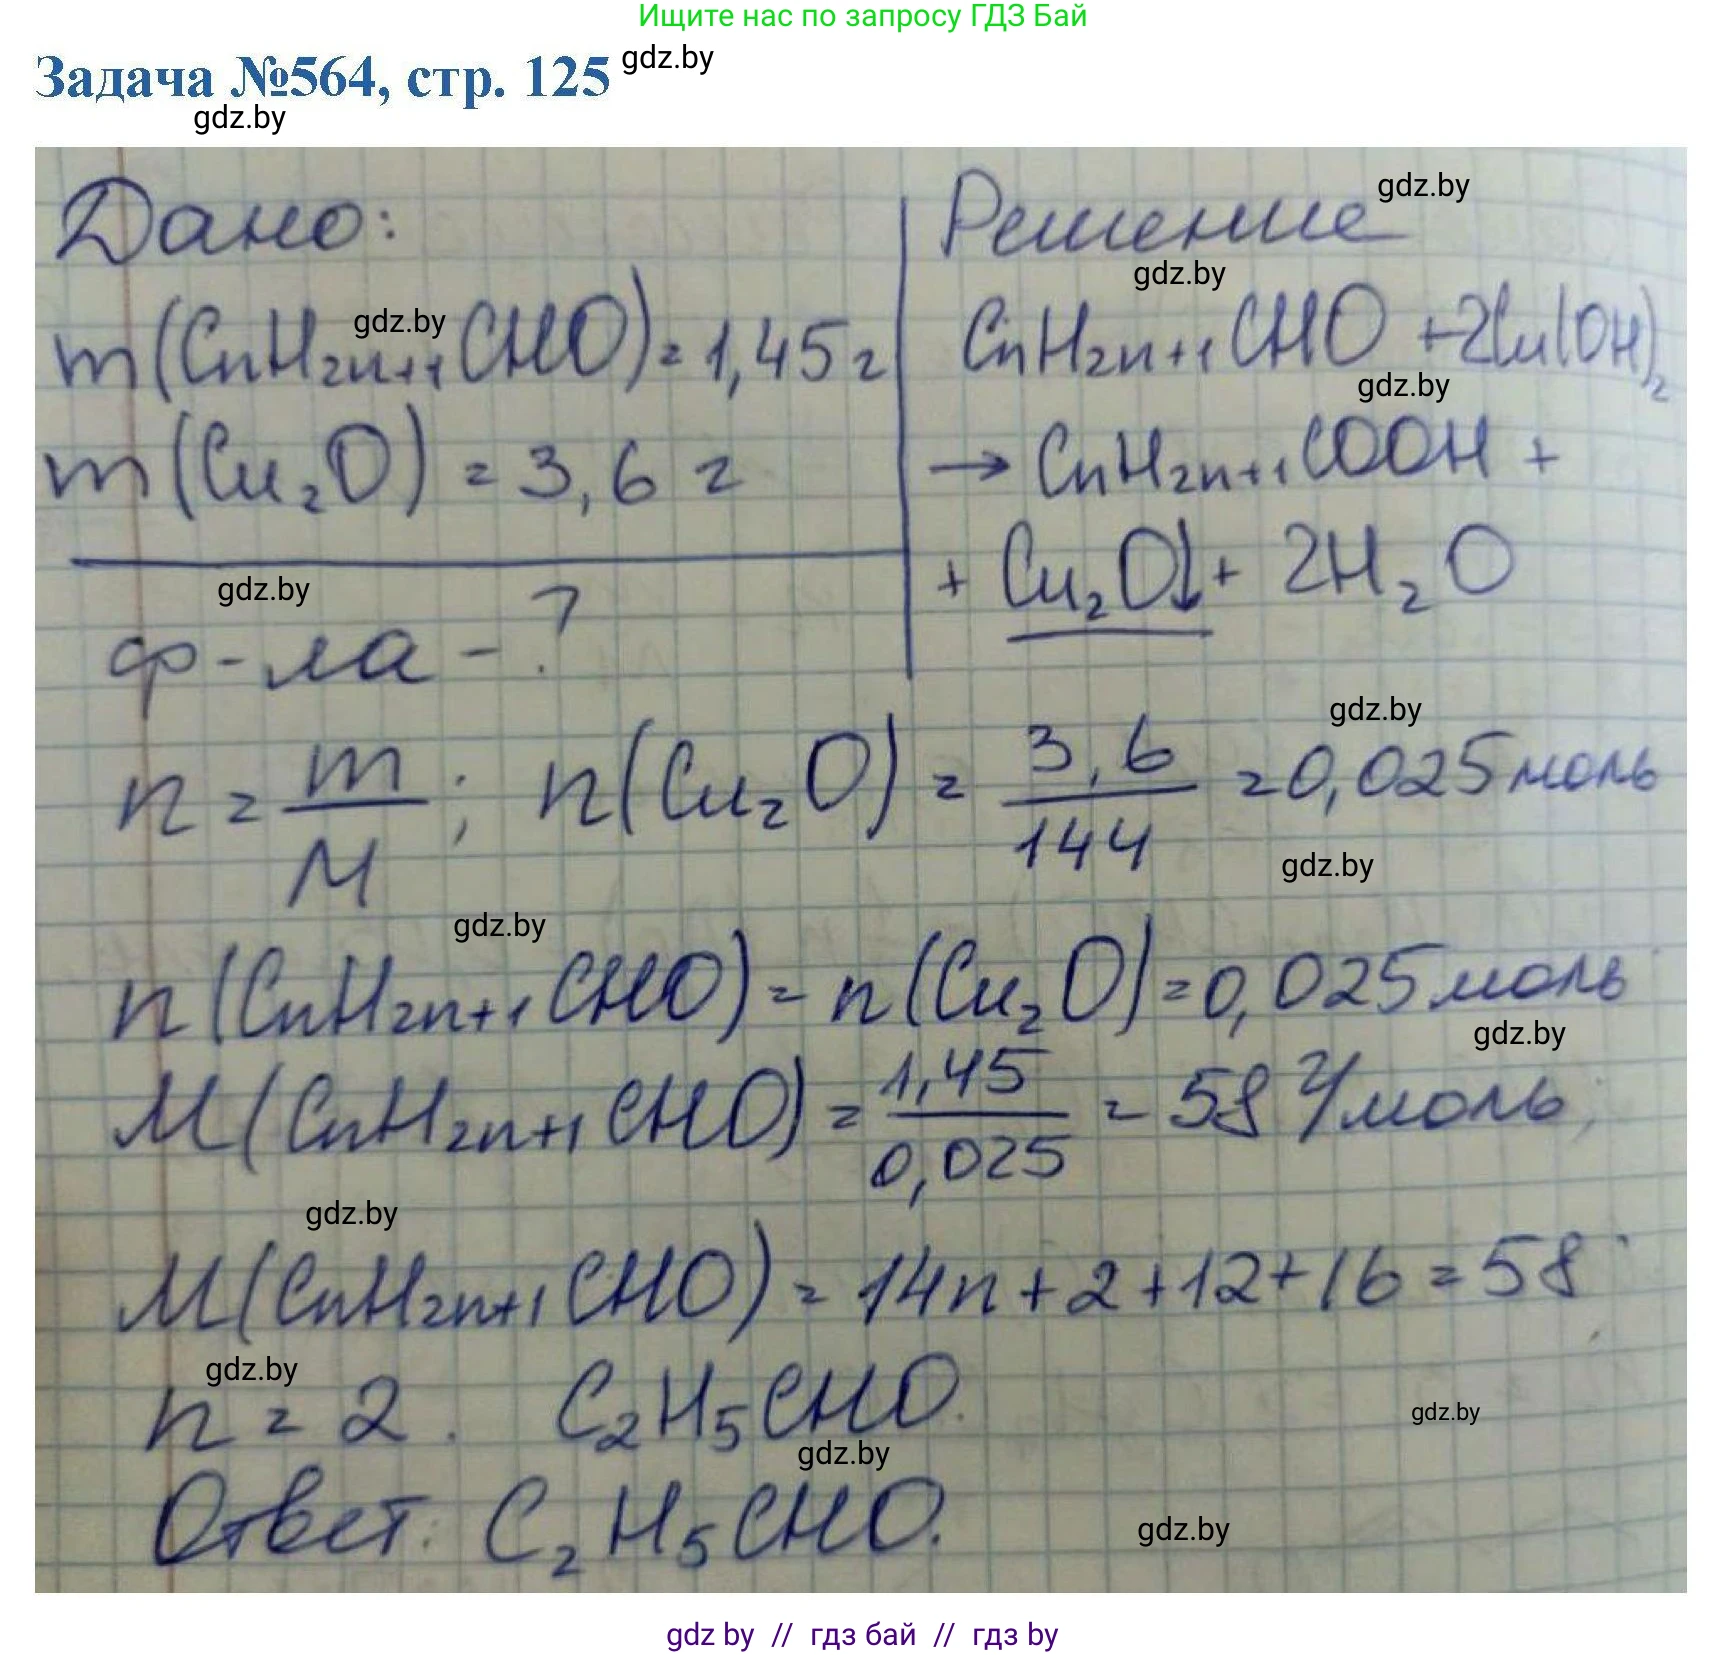 Ищите нас по запросу ГДЗ Бай
Задача №564, стр. 125 gdz.by
gdz.by
Дано:
m(CnH2n+1CHO)=1,45г
gdz.by
m(Cu2O) = 3,6 г
gdz.by
ф-ла - ?
Решение
gdz.by
gdz.by
CnH2n+1CHO +2Cu(OH)2
gdz.by
→ CnH2n+1COOH +
+ Cu2O↓ + 2H2O
gdz.by
n = m/M; n(Cu2O) = 3,6/144 = 0,025моль
gdz.by
gdz.by
n(CnH2n+1CHO) = n(Cu2O) = 0,025моль
gdz.by
M(CnH2n+1CHO) = 1,45/0,025 = 58 г/моль;
gdz.by
M(CnH2n+1CHO) = 14n+2+12+16=58
gdz.by
n = 2. C2H5CHO.
gdz.by
gdz.by
Ответ: C2H5CHO.
gdz.by
gdz by // гдз бай // гдз by